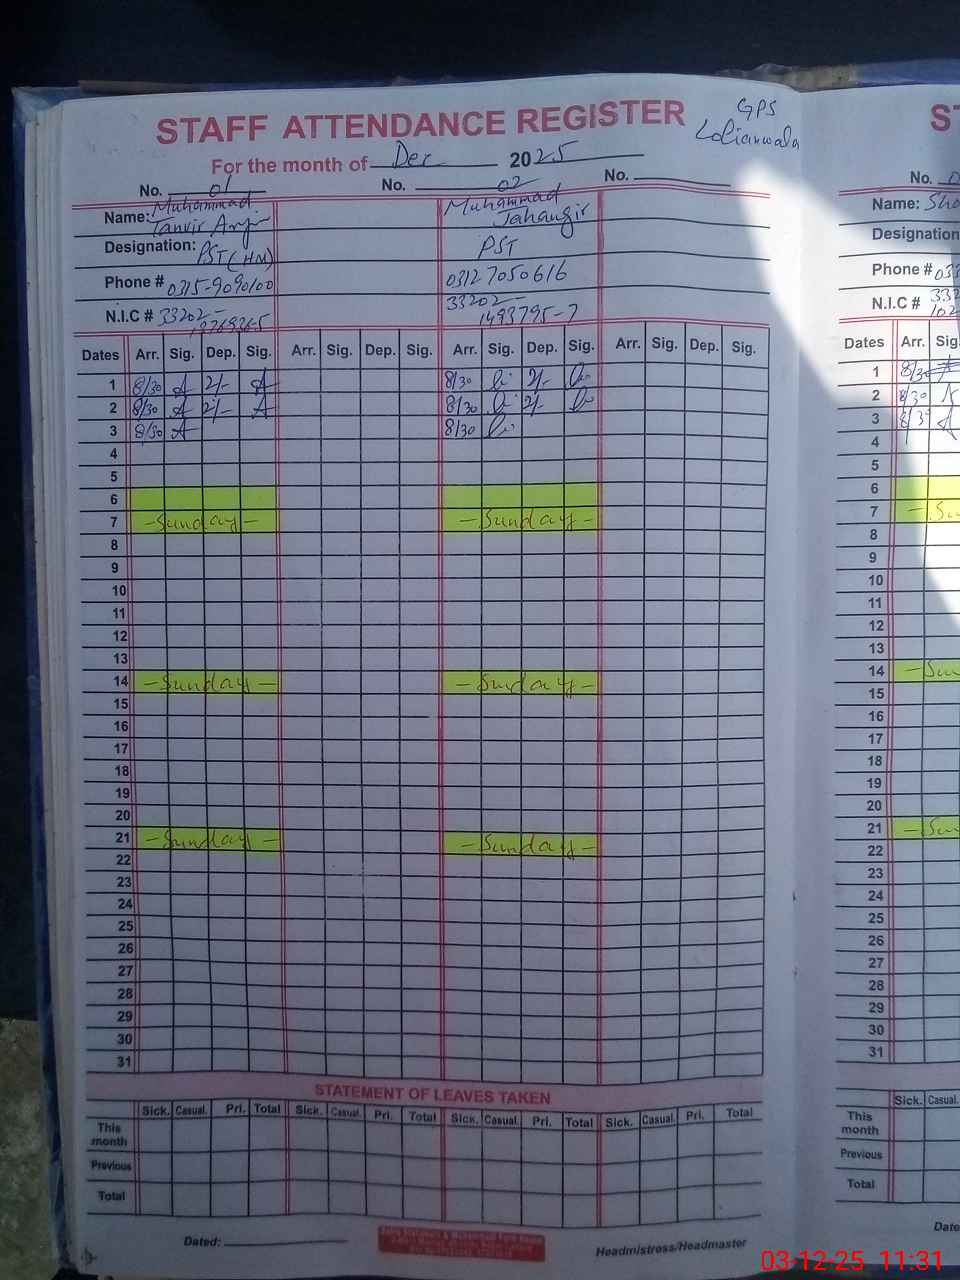 GPS
STAFF ATTENDANCE REGISTER
Lolianwala
For the month of Dec 2025
No. 01 No. 02 No.
Name: Muhammad Muhammad
Tanvir Jahangir
Designation: PST (HM) PST
Phone # 0315-9090100 03127050616
N.I.C # 33202- 33202-
1493795-7
Dates Arr. Sig. Dep. Sig. Arr. Sig. Dep. Sig. Arr. Sig. Dep. Sig. Arr. Sig. Dep. Sig.
1 8/30 2/- 8/30 2/-
2 8/30 2/- 8/30 2/-
3 8/30 8/30
4
5
6
7 -Sunday- -Sunday-
8
9
10
11
12
13
14 -Sunday- -Sunday-
15
16
17
18
19
20
21 -Sunday- -Sunday-
22
23
24
25
26
27
28
29
30
31
STATEMENT OF LEAVES TAKEN
Sick. Casual. Pri. Total Sick. Casual. Pri. Total Sick. Casual. Pri. Total Sick. Casual. Pri. Total
This
month
Previous
Total
Dated:
Headmistress/Headmaster
No.
Name:
Designation
Phone #
N.I.C #
Dates Arr. Sig.
1 8/30
2 8/30
3 8/3
4
5
6
7
8
9
10
11
12
13
14
15
16
17
18
19
20
21
22
23
24
25
26
27
28
29
30
31
Sick. Casual.
This
month
Previous
Total
Date
03-12-25 11:31